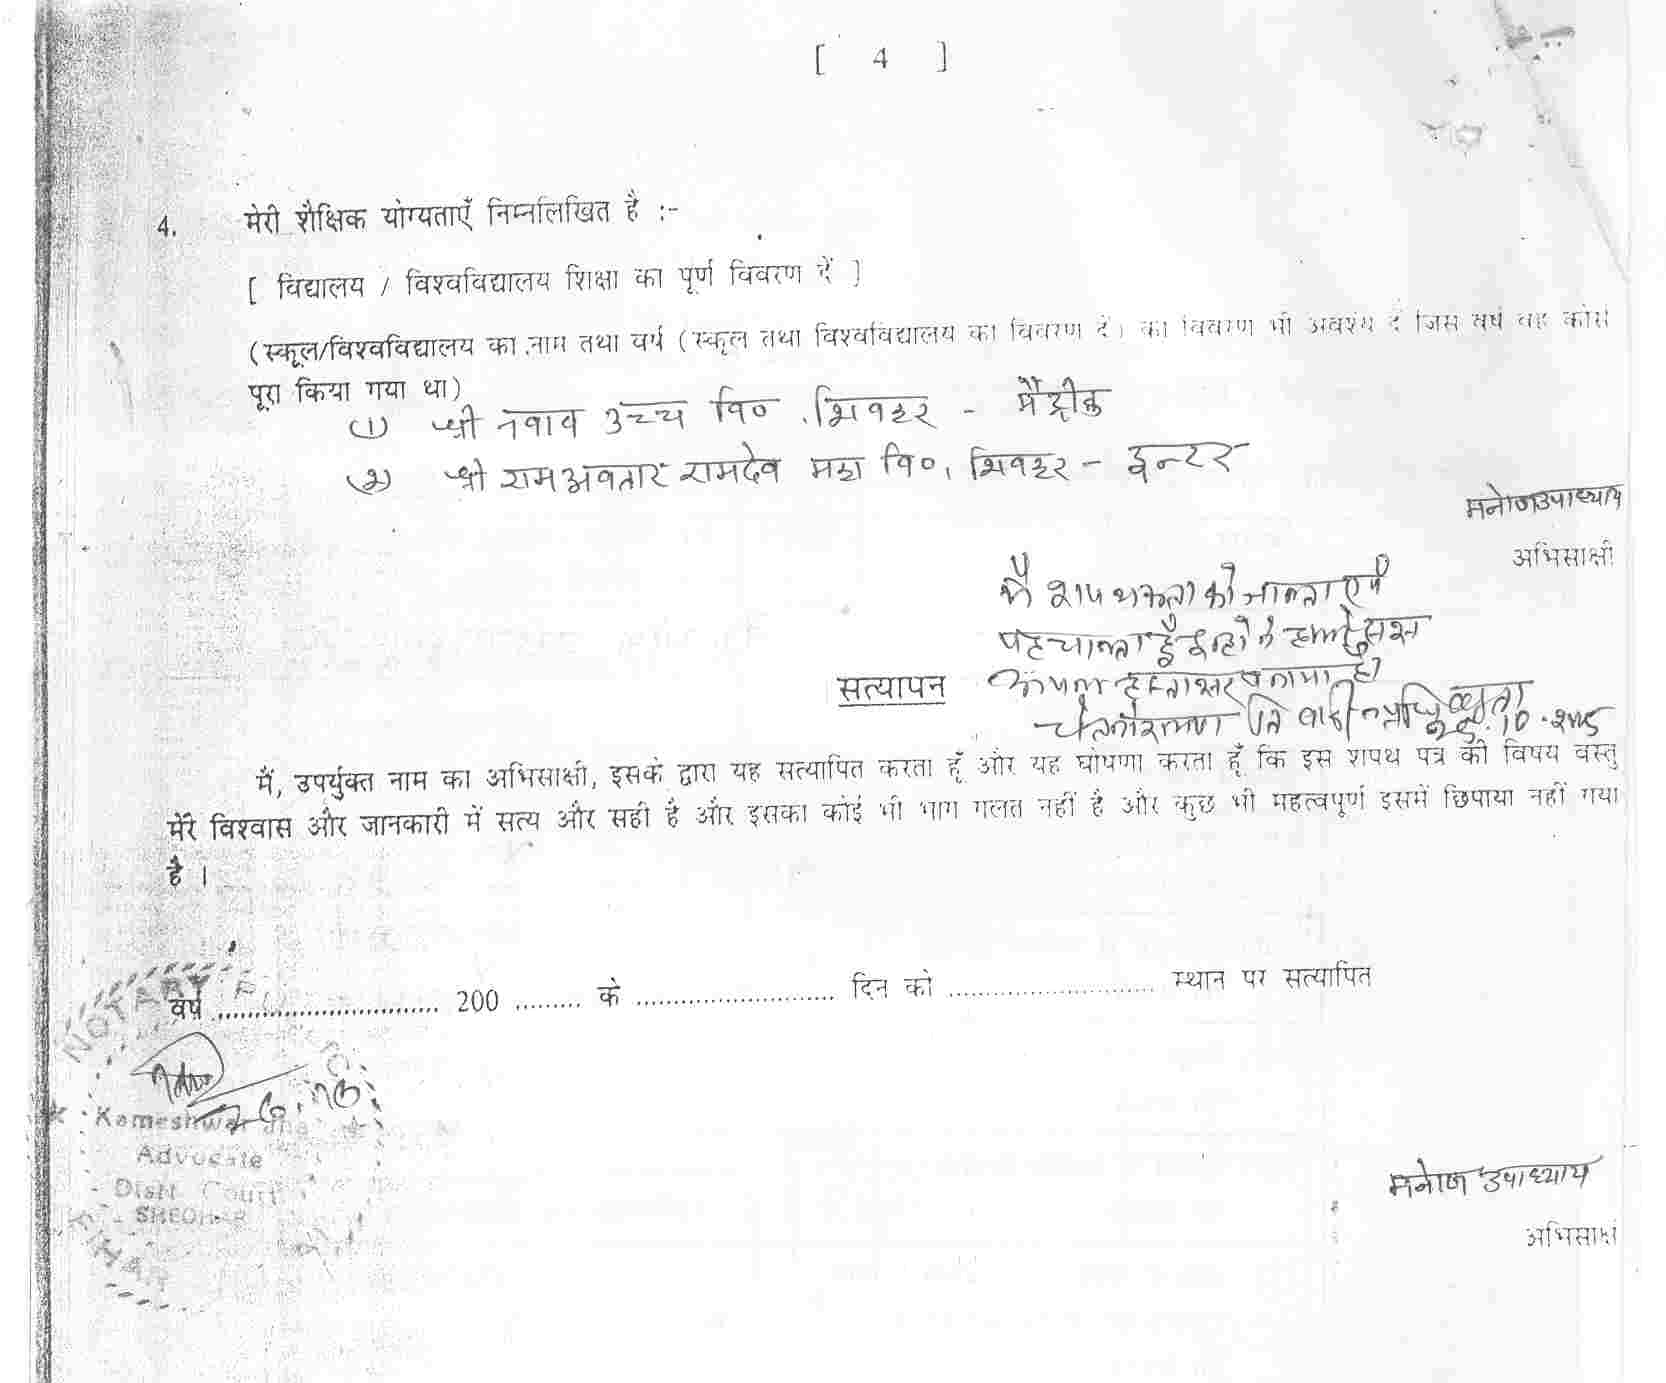 [ 4 ]
4. मेरी शैक्षिक योग्यताएँ निम्नलिखित है :-
[ विद्यालय / विश्वविद्यालय शिक्षा का पूर्ण विवरण दें ]
(स्कूल/विश्वविद्यालय का नाम तथा वर्ष (स्कूल तथा विश्वविद्यालय का विवरण दें) का विवरण भी अवश्य दें जिस वर्ष वह कोर्स
पूरा किया गया था)
(1) श्री नवाब उच्च वि० , शिवहर - मैट्रीक
(2) श्री रामअवतार रामदेव महा वि०, शिवहर - इन्टर
मनोज उपाध्याय
अभिसाक्षी
मै शपथकर्ता को जानता एवं
पहचानता हूँ इन्होंने हमारे समक्ष
सत्यापन अपना हस्ताक्षर बनाया है।
26.10.2005
मैं, उपर्युक्त नाम का अभिसाक्षी, इसके द्वारा यह सत्यापित करता हूँ और यह घोषणा करता हूँ कि इस शपथ पत्र की विषय वस्तु
मेरे विश्वास और जानकारी में सत्य और सही है और इसका कोई भी भाग गलत नहीं है और कुछ भी महत्वपूर्ण इसमें छिपाया नहीं गया
है ।
वर्ष .............................. 200 ......... के .......................... दिन को ............................ स्थान पर सत्यापित
NOTARY
Kameshwar Jha
Advocate
Distt. Court
SHEOHAR
BIHAR
मनोज उपाध्याय
अभिसाक्षी